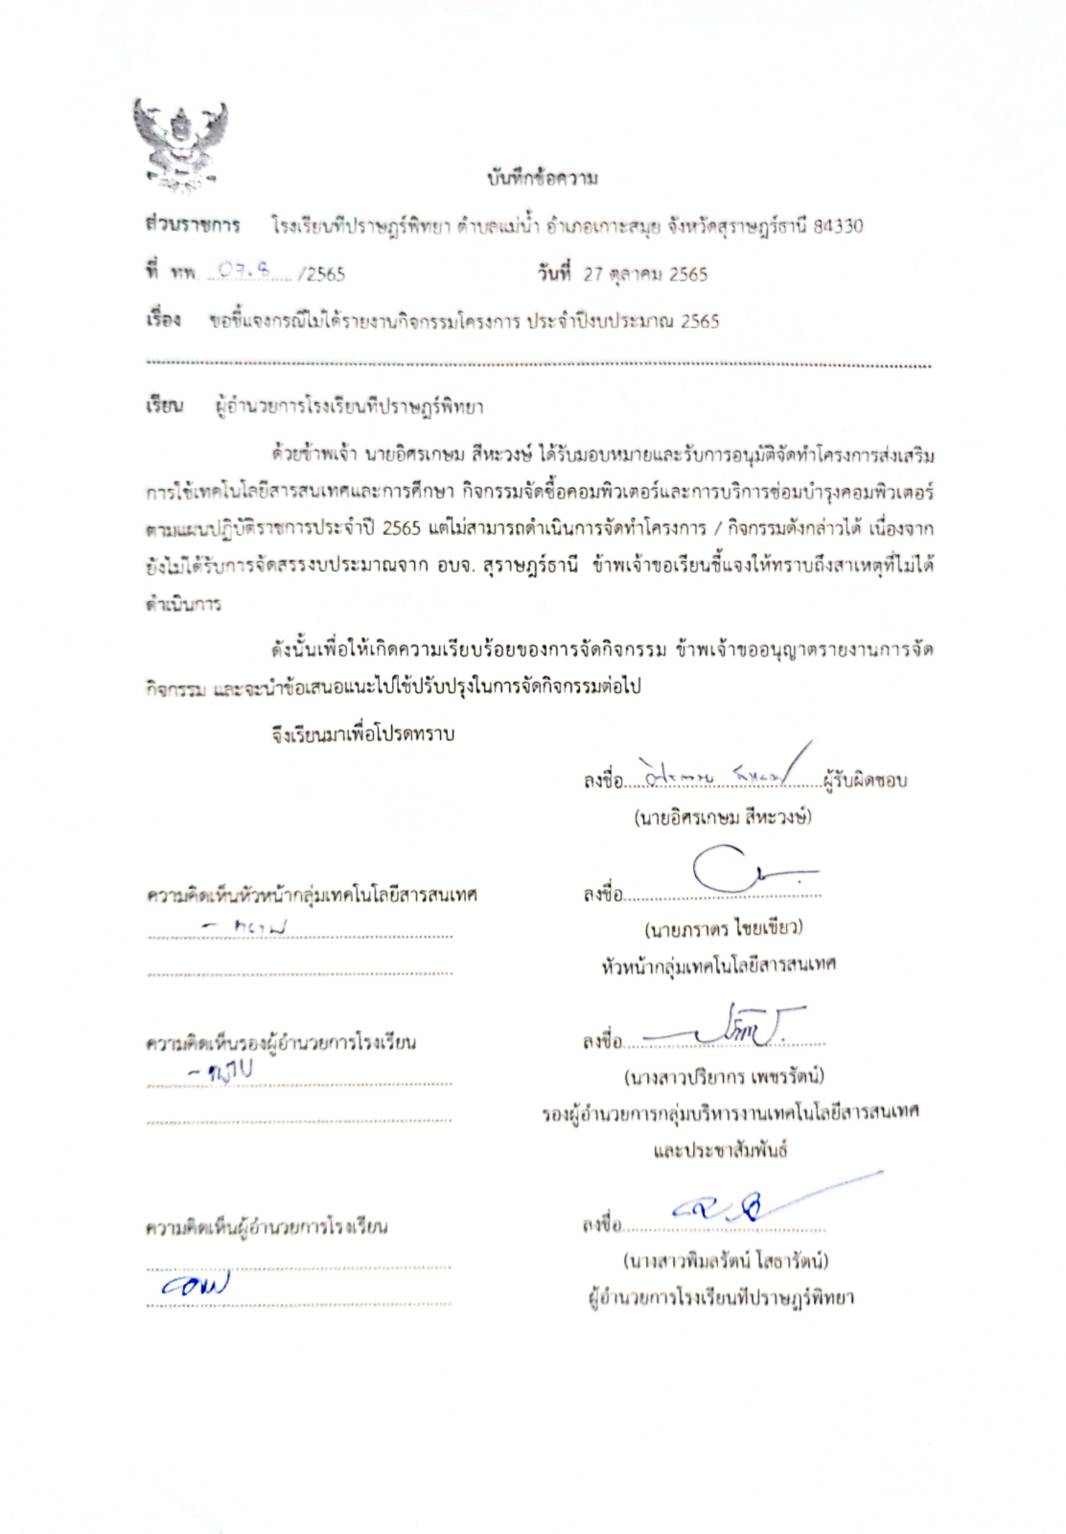 บันทึกข้อความ
ส่วนราชการ โรงเรียนทีปราษฎร์พิทยา ตำบลแม่น้ำ อำเภอเกาะสมุย จังหวัดสุราษฎร์ธานี 84330
ที่ ทพ. 07.8 /2565 วันที่ 27 ตุลาคม 2565
เรื่อง ขอชี้แจงกรณีไม่ได้รายงานกิจกรรมโครงการ ประจำปีงบประมาณ 2565
เรียน ผู้อำนวยการโรงเรียนทีปราษฎร์พิทยา
ด้วยข้าพเจ้า นายอิศรเกษม สีหะวงษ์ ได้รับมอบหมายและรับการอนุมัติจัดทำโครงการส่งเสริม
การใช้เทคโนโลยีสารสนเทศและการศึกษา กิจกรรมจัดซื้อคอมพิวเตอร์และการบริการซ่อมบำรุงคอมพิวเตอร์
ตามแผนปฏิบัติราชการประจำปี 2565 แต่ไม่สามารถดำเนินการจัดทำโครงการ / กิจกรรมดังกล่าวได้ เนื่องจาก
ยังไม่ได้รับการจัดสรรงบประมาณจาก อบจ. สุราษฎร์ธานี ข้าพเจ้าขอเรียนชี้แจงให้ทราบถึงสาเหตุที่ไม่ได้
ดำเนินการ
ดังนั้นเพื่อให้เกิดความเรียบร้อยของการจัดกิจกรรม ข้าพเจ้าขออนุญาตรายงานการจัด
กิจกรรม และจะนำข้อเสนอแนะไปใช้ปรับปรุงในการจัดกิจกรรมต่อไป
จึงเรียนมาเพื่อโปรดทราบ
ลงชื่อ ผู้รับผิดชอบ
(นายอิศรเกษม สีหะวงษ์)
ความคิดเห็นหัวหน้ากลุ่มเทคโนโลยีสารสนเทศ ลงชื่อ
- ทราบ
(นายภราดร ไชยเขียว)
หัวหน้ากลุ่มเทคโนโลยีสารสนเทศ
ความคิดเห็นรองผู้อำนวยการโรงเรียน ลงชื่อ
- ทราบ
(นางสาวปริยากร เพชรรัตน์)
รองผู้อำนวยการกลุ่มบริหารงานเทคโนโลยีสารสนเทศ
และประชาสัมพันธ์
ความคิดเห็นผู้อำนวยการโรงเรียน ลงชื่อ
(นางสาวพิมลรัตน์ โสธารัตน์)
ผู้อำนวยการโรงเรียนทีปราษฎร์พิทยา